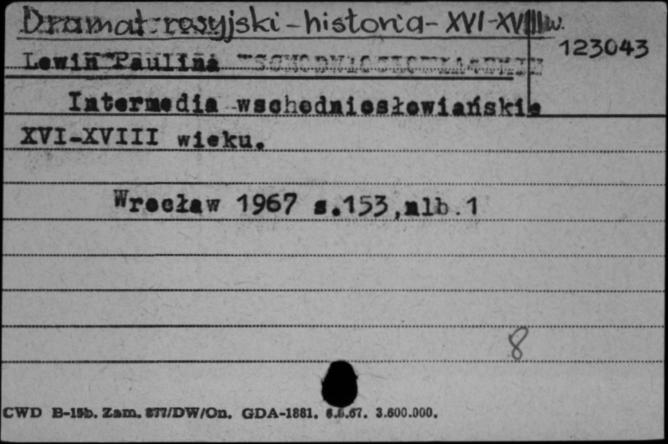 Dramat rosyjski - historia - XVI-XVIII w.
123043
Lewin Paulina
Intermedia wschodniosłowiańskie
XVI-XVIII wieku.
Wrocław 1967 s.153,nlb.1
8
CWD B-15b. Zam. 877/DW/On. GDA-1881. 6.6.67. 3.600.000.